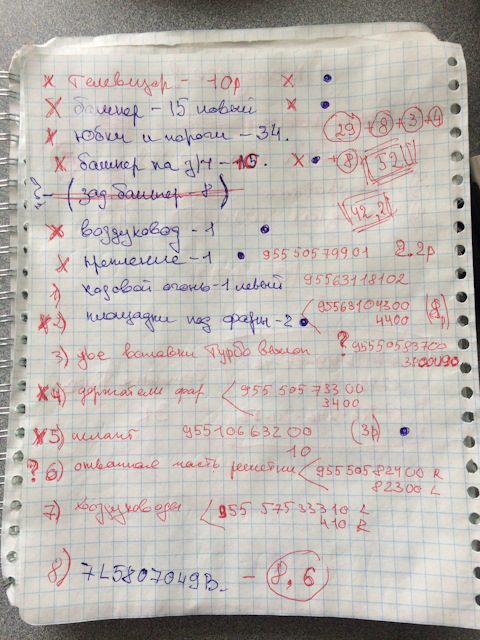 x телевизор - 10р x •
x бампер - 15 новый x •
x Юбки и пороги - 34. (29) + (8) + (3) + (4)
x бампер на з/ч - 10. x • + (8) (52)
? - (зад бампер - 8) (42,2)
x воздуховод - 1 •
x крепление - 1 • 95550579901 2,2р
1) ходовой огонь - 1 левый 95563118102
x 2) площадки под фары - 2 • < 95563104300 4400
3) две вставки Турбо ? 95550583700
x 4) держатели фар < 95550573300
3400
x 5) шланг 95510663200 (3р) •
10
? 6) ответная часть решетки < 95550582400 R
82300 L
7) воздуховоды < 95557533310 L
410 R
8) 7L5807049B. - (8,6)